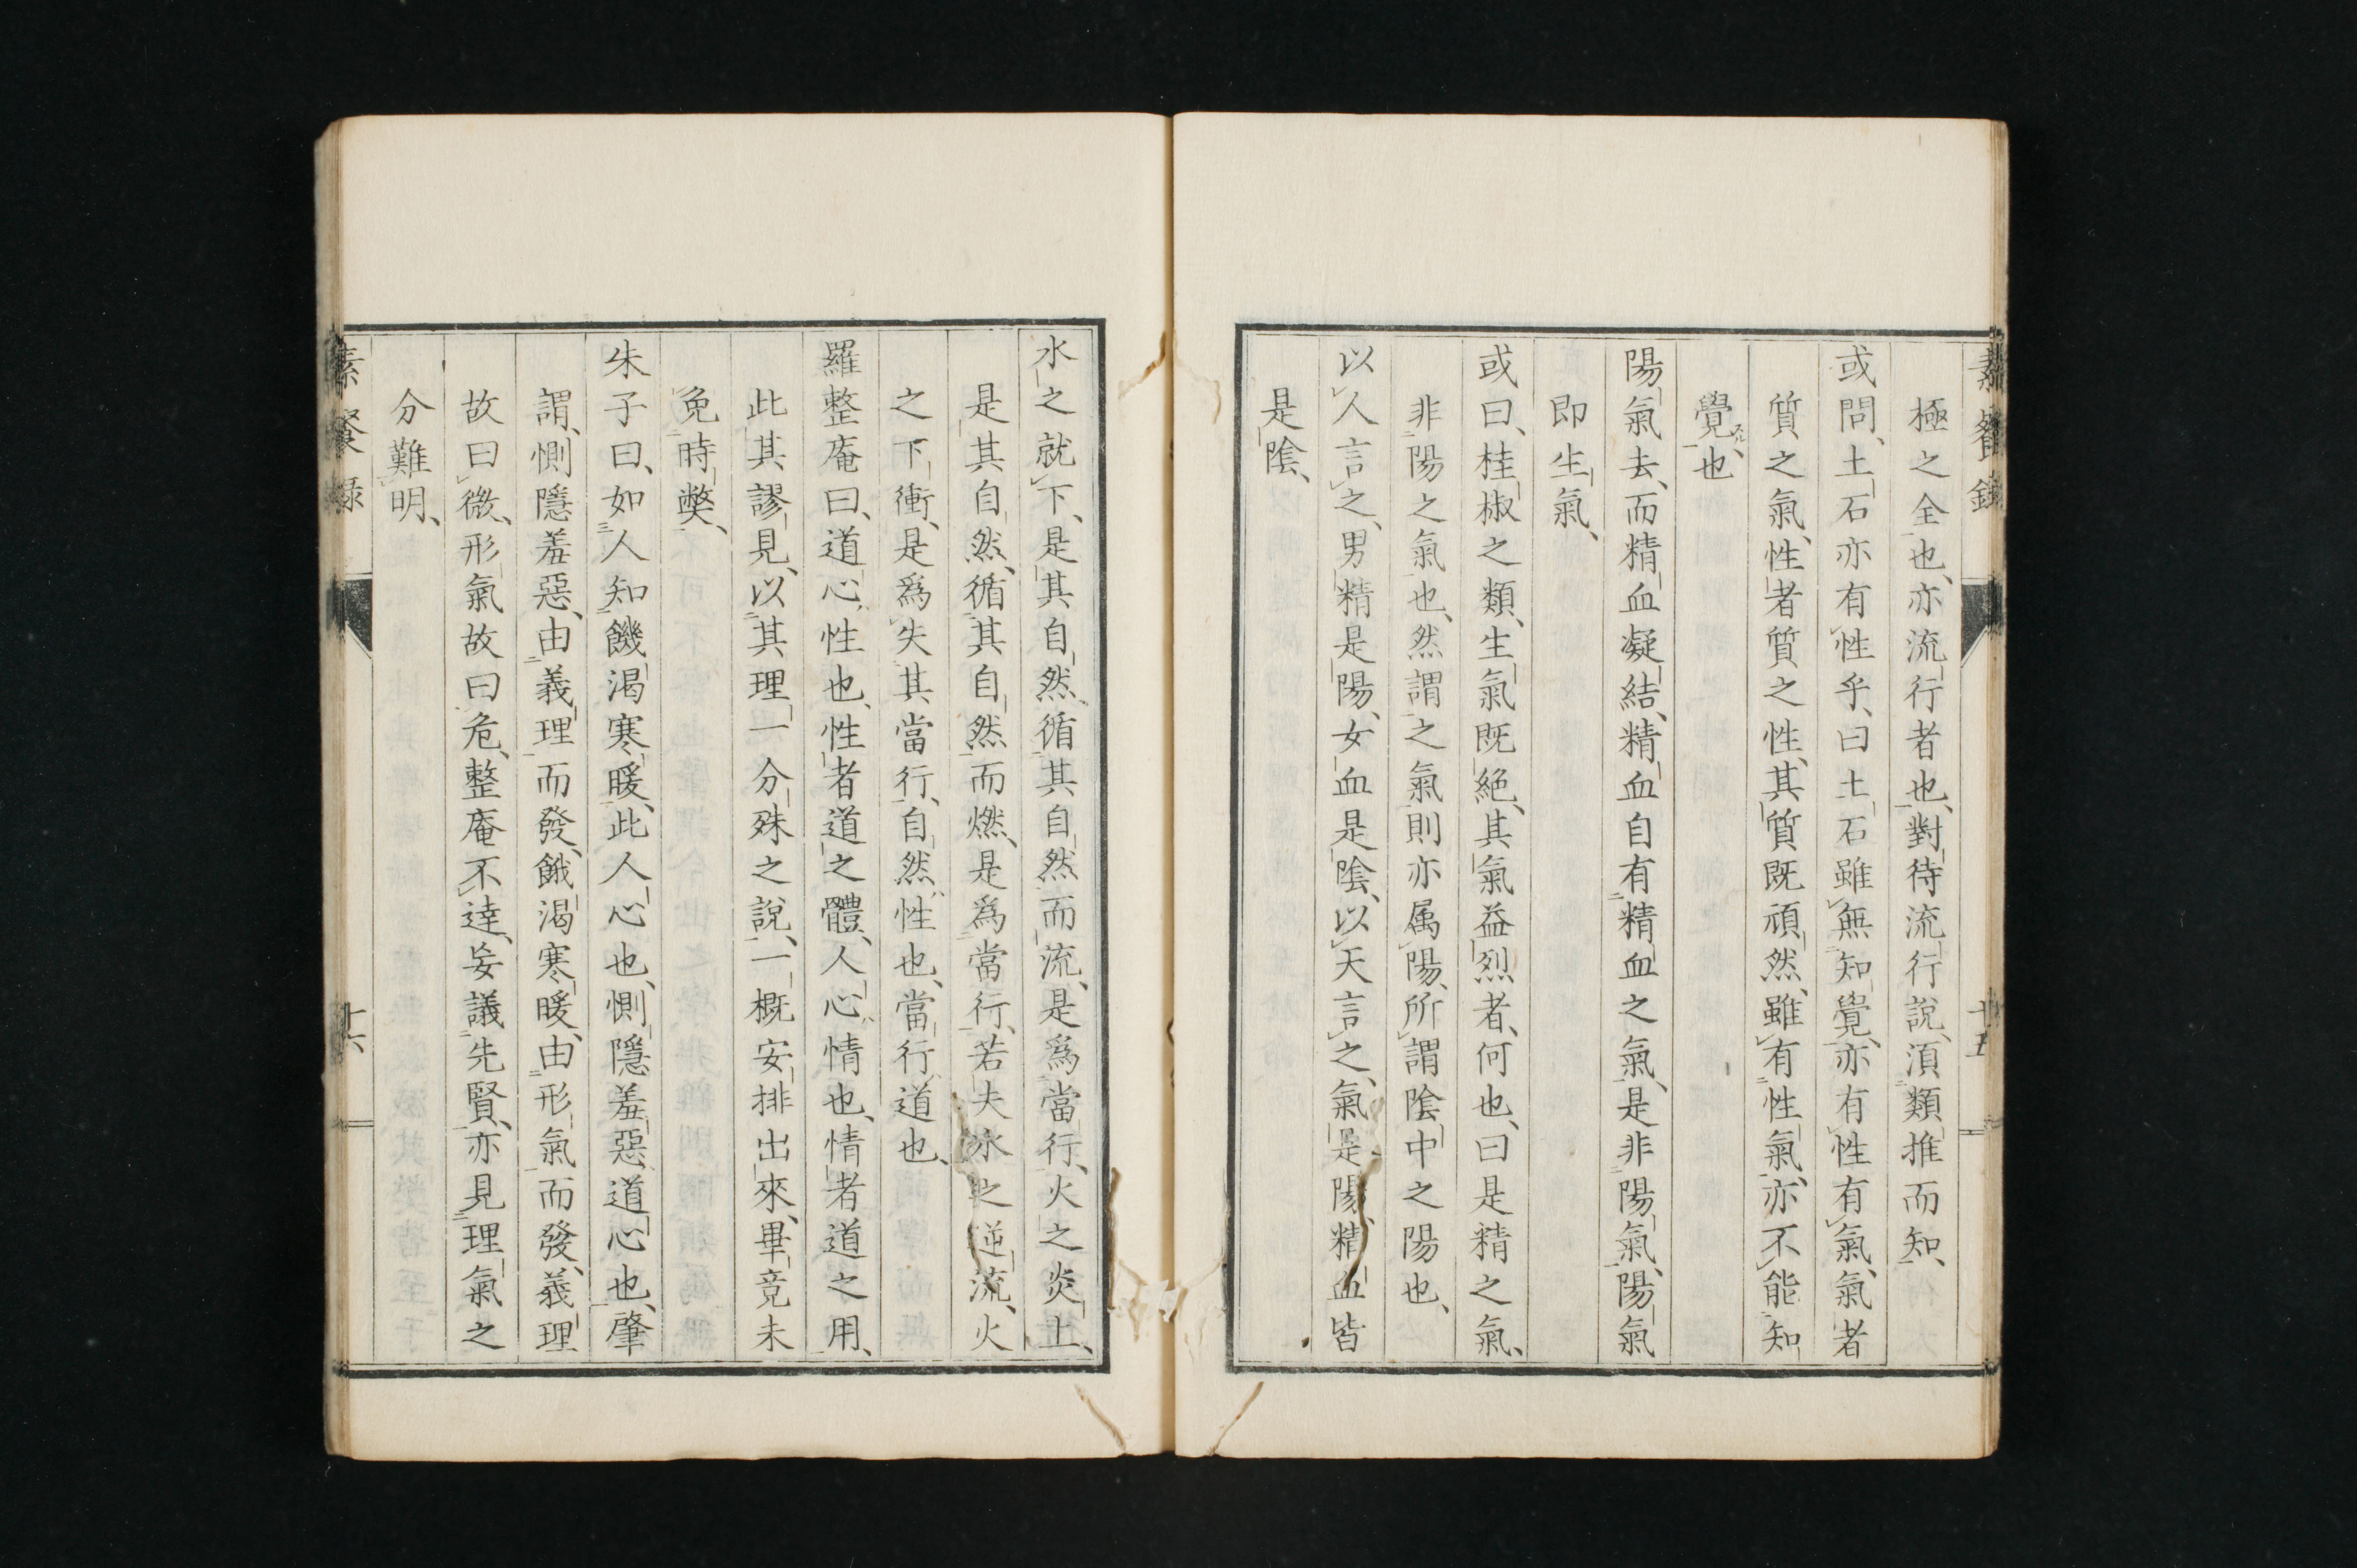 極之全也、亦流行者也、對待流行說、須類推而知、
或問、土石亦有性乎、曰土石雖無知覺、亦有性有氣、氣者
質之氣、性者質之性、其質既頑然、雖有性氣、亦不能知
覺也、
陽氣去、而精血凝結、精血自有精血之氣、是非陽氣、陽氣
即生氣、
或曰、桂椒之類、生氣既絕、其氣益烈者、何也、曰是精之氣、
非陽之氣也、然謂之氣則亦属陽、所謂陰中之陽也、
以人言之、男精是陽、女血是陰、以天言之、氣是陽、精血皆
是陰、
十五
水之就下、是其自然、循其自然而流、是爲當行、火之炎上、
是其自然、循其自然而燃、是爲當行、若夫水之逆流、火
之下衝、是爲失其當行、自然、性也、當行、道也、
羅整庵曰、道心、性也、性者道之體、人心、情也、情者道之用、
此其謬見、以其理一分殊之說、一概安排出來、畢竟未
免時獘、
朱子曰、如人知饑渴寒暖、此人心也、惻隱羞惡、道心也、肇
謂、惻隱羞惡、由義理而發、餓渴寒暖、由形氣而發、義理
故曰微、形氣故曰危、整庵不達、妄議先賢、亦見理氣之
分難明、
素餐録
十六